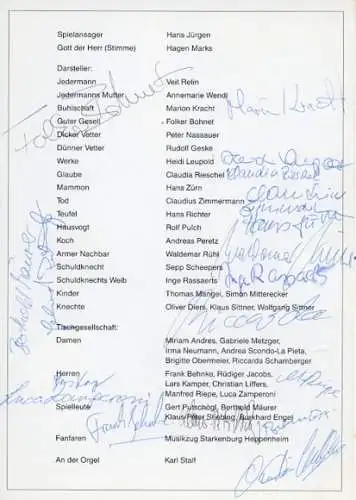 Spielansager Hans Jürgen
Gott der Herr (Stimme) Hagen Marks
Darsteller:
Jedermann Veit Relin
Jedermanns Mutter Annemarie Wendl
Buhlschaft Marion Kracht
Guter Gesell Folker Bohnet
Dicker Vetter Peter Nassauer
Dünner Vetter Rudolf Geske
Werke Heidi Leupold
Glaube Claudia Rieschel
Mammon Hans Zürn
Tod Claudius Zimmermann
Teufel Hans Richter
Hausvogt Rolf Pulch
Koch Andreas Peretz
Armer Nachbar Waldemar Rühl
Schuldknecht Sepp Scheepers
Schuldknechts Weib Inge Rassaerts
Kinder Thomas Mangei, Simon Mitterecker
Knechte Oliver Diers, Klaus Sittner, Wolfgang Sittner
Tischgesellschaft:
Damen Miriam Andres, Gabriele Metzger,
Irma Neumann, Andrea Scondo-La Pieta,
Brigitte Obermeier, Riccarda Schamberger
Herren Frank Behnke, Rüdiger Jacobs,
Lars Kamper, Christian Liffers,
Manfred Riepe, Luca Zamperoni
Spielleute Gert Putschögl, Berthold Mäurer
Klaus-Peter Stiebling, Burkhard Engel
Fanfaren Musikzug Starkenburg Heppenheim
An der Orgel Karl Stall